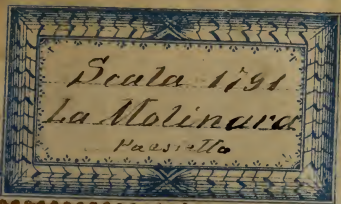 Scala 1791
La Molinara
Paesiello